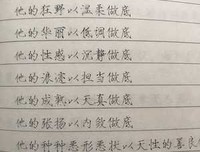 他的狂野以温柔做底
他的华丽以低调做底
他的性感以沉静做底
他的浪漫以担当做底
他的成熟以天真做底
他的张扬以内敛做底
他的种种恶形恶状以天性的善良做